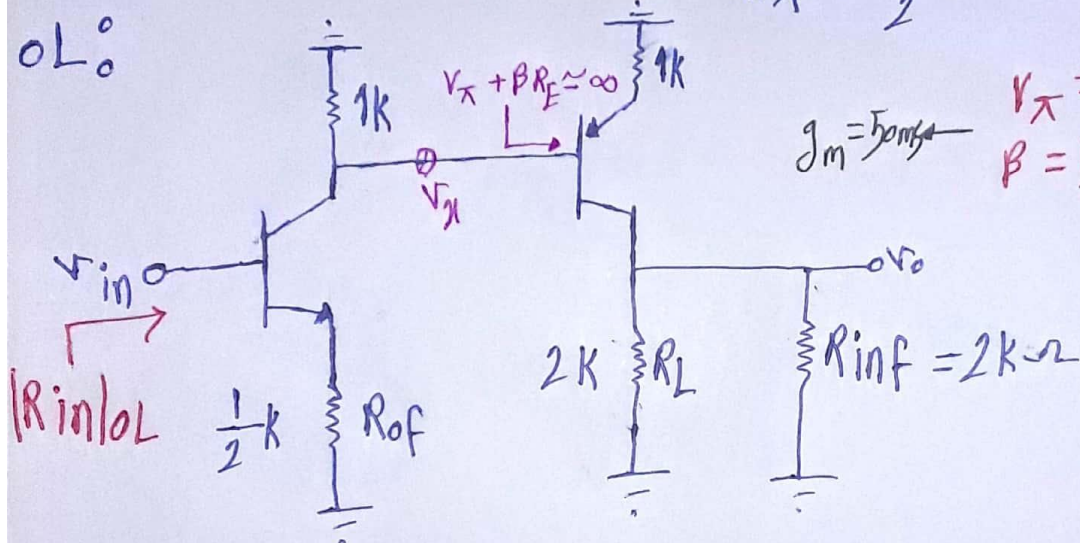 OL:
1K
Vπ + βRE ≃ ∞
1K
gm = 50ms
Vπ
β =
Vx
Vin
Vo
|Rin|OL
1/2 K
Rof
2K
RL
Rinf = 2KΩ
2